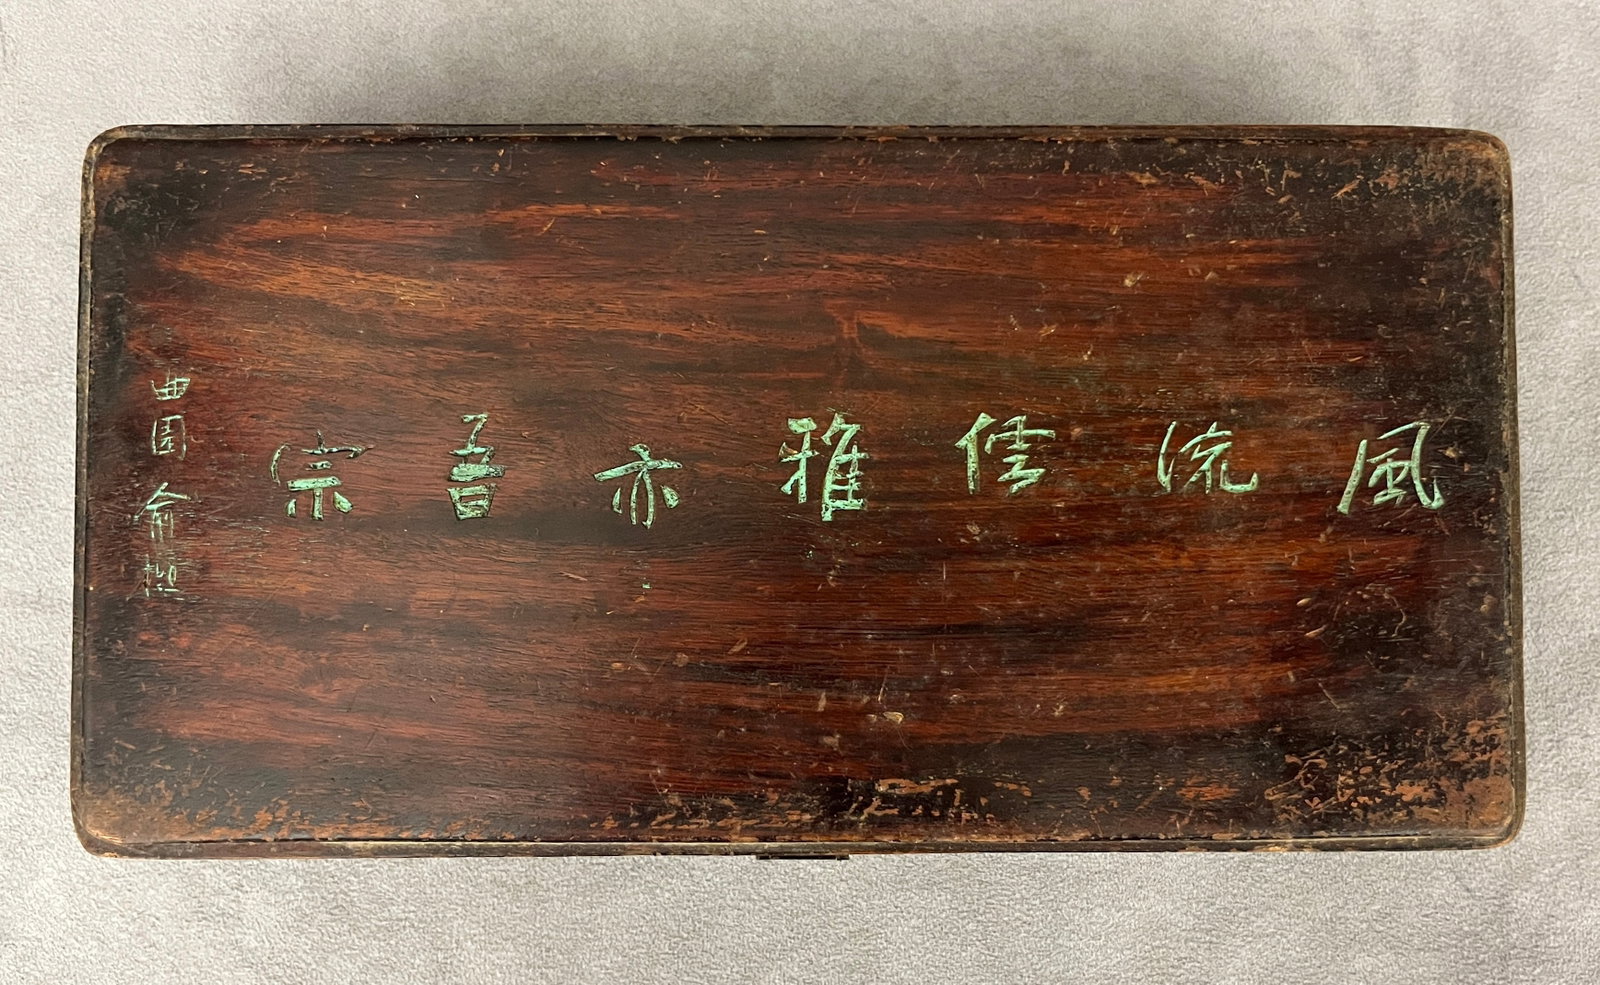 風流儒雅亦吾宗
曲園俞樾